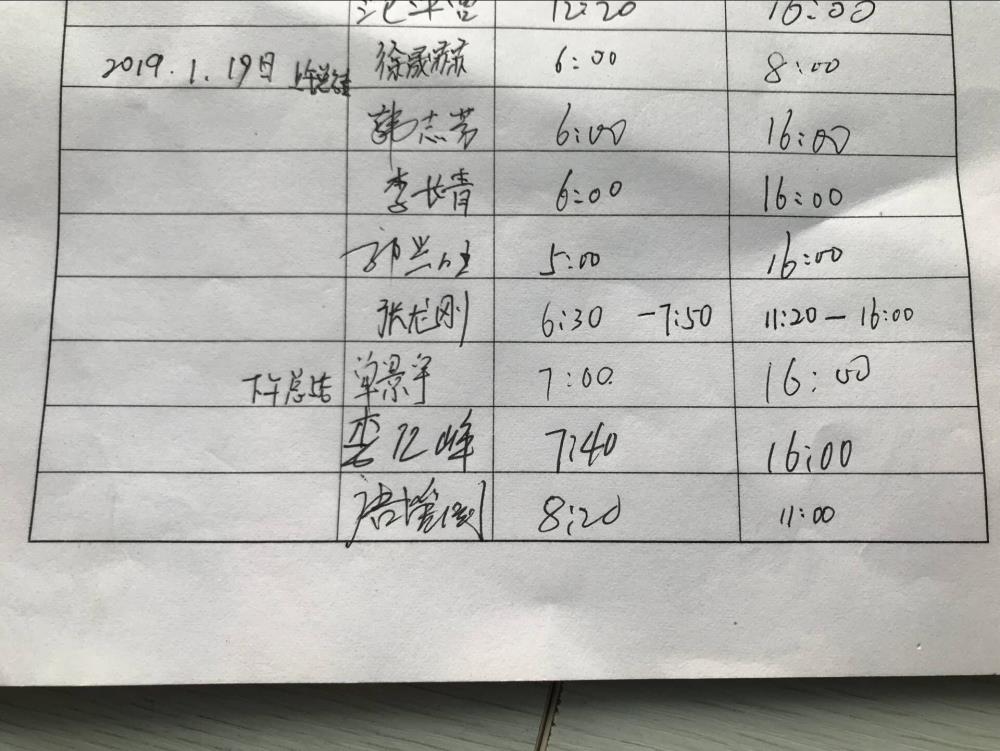 12:20 16:00
2019.1.19日 徐晟 6:00 8:00
韩志芳 6:00 16:00
李长青 6:00 16:00
5:00 16:00
张龙刚 6:30 -7:50 11:20-16:00
下午总结 单景宇 7:00 16:00
李 峰 7:40 16:00
8:20 11:00